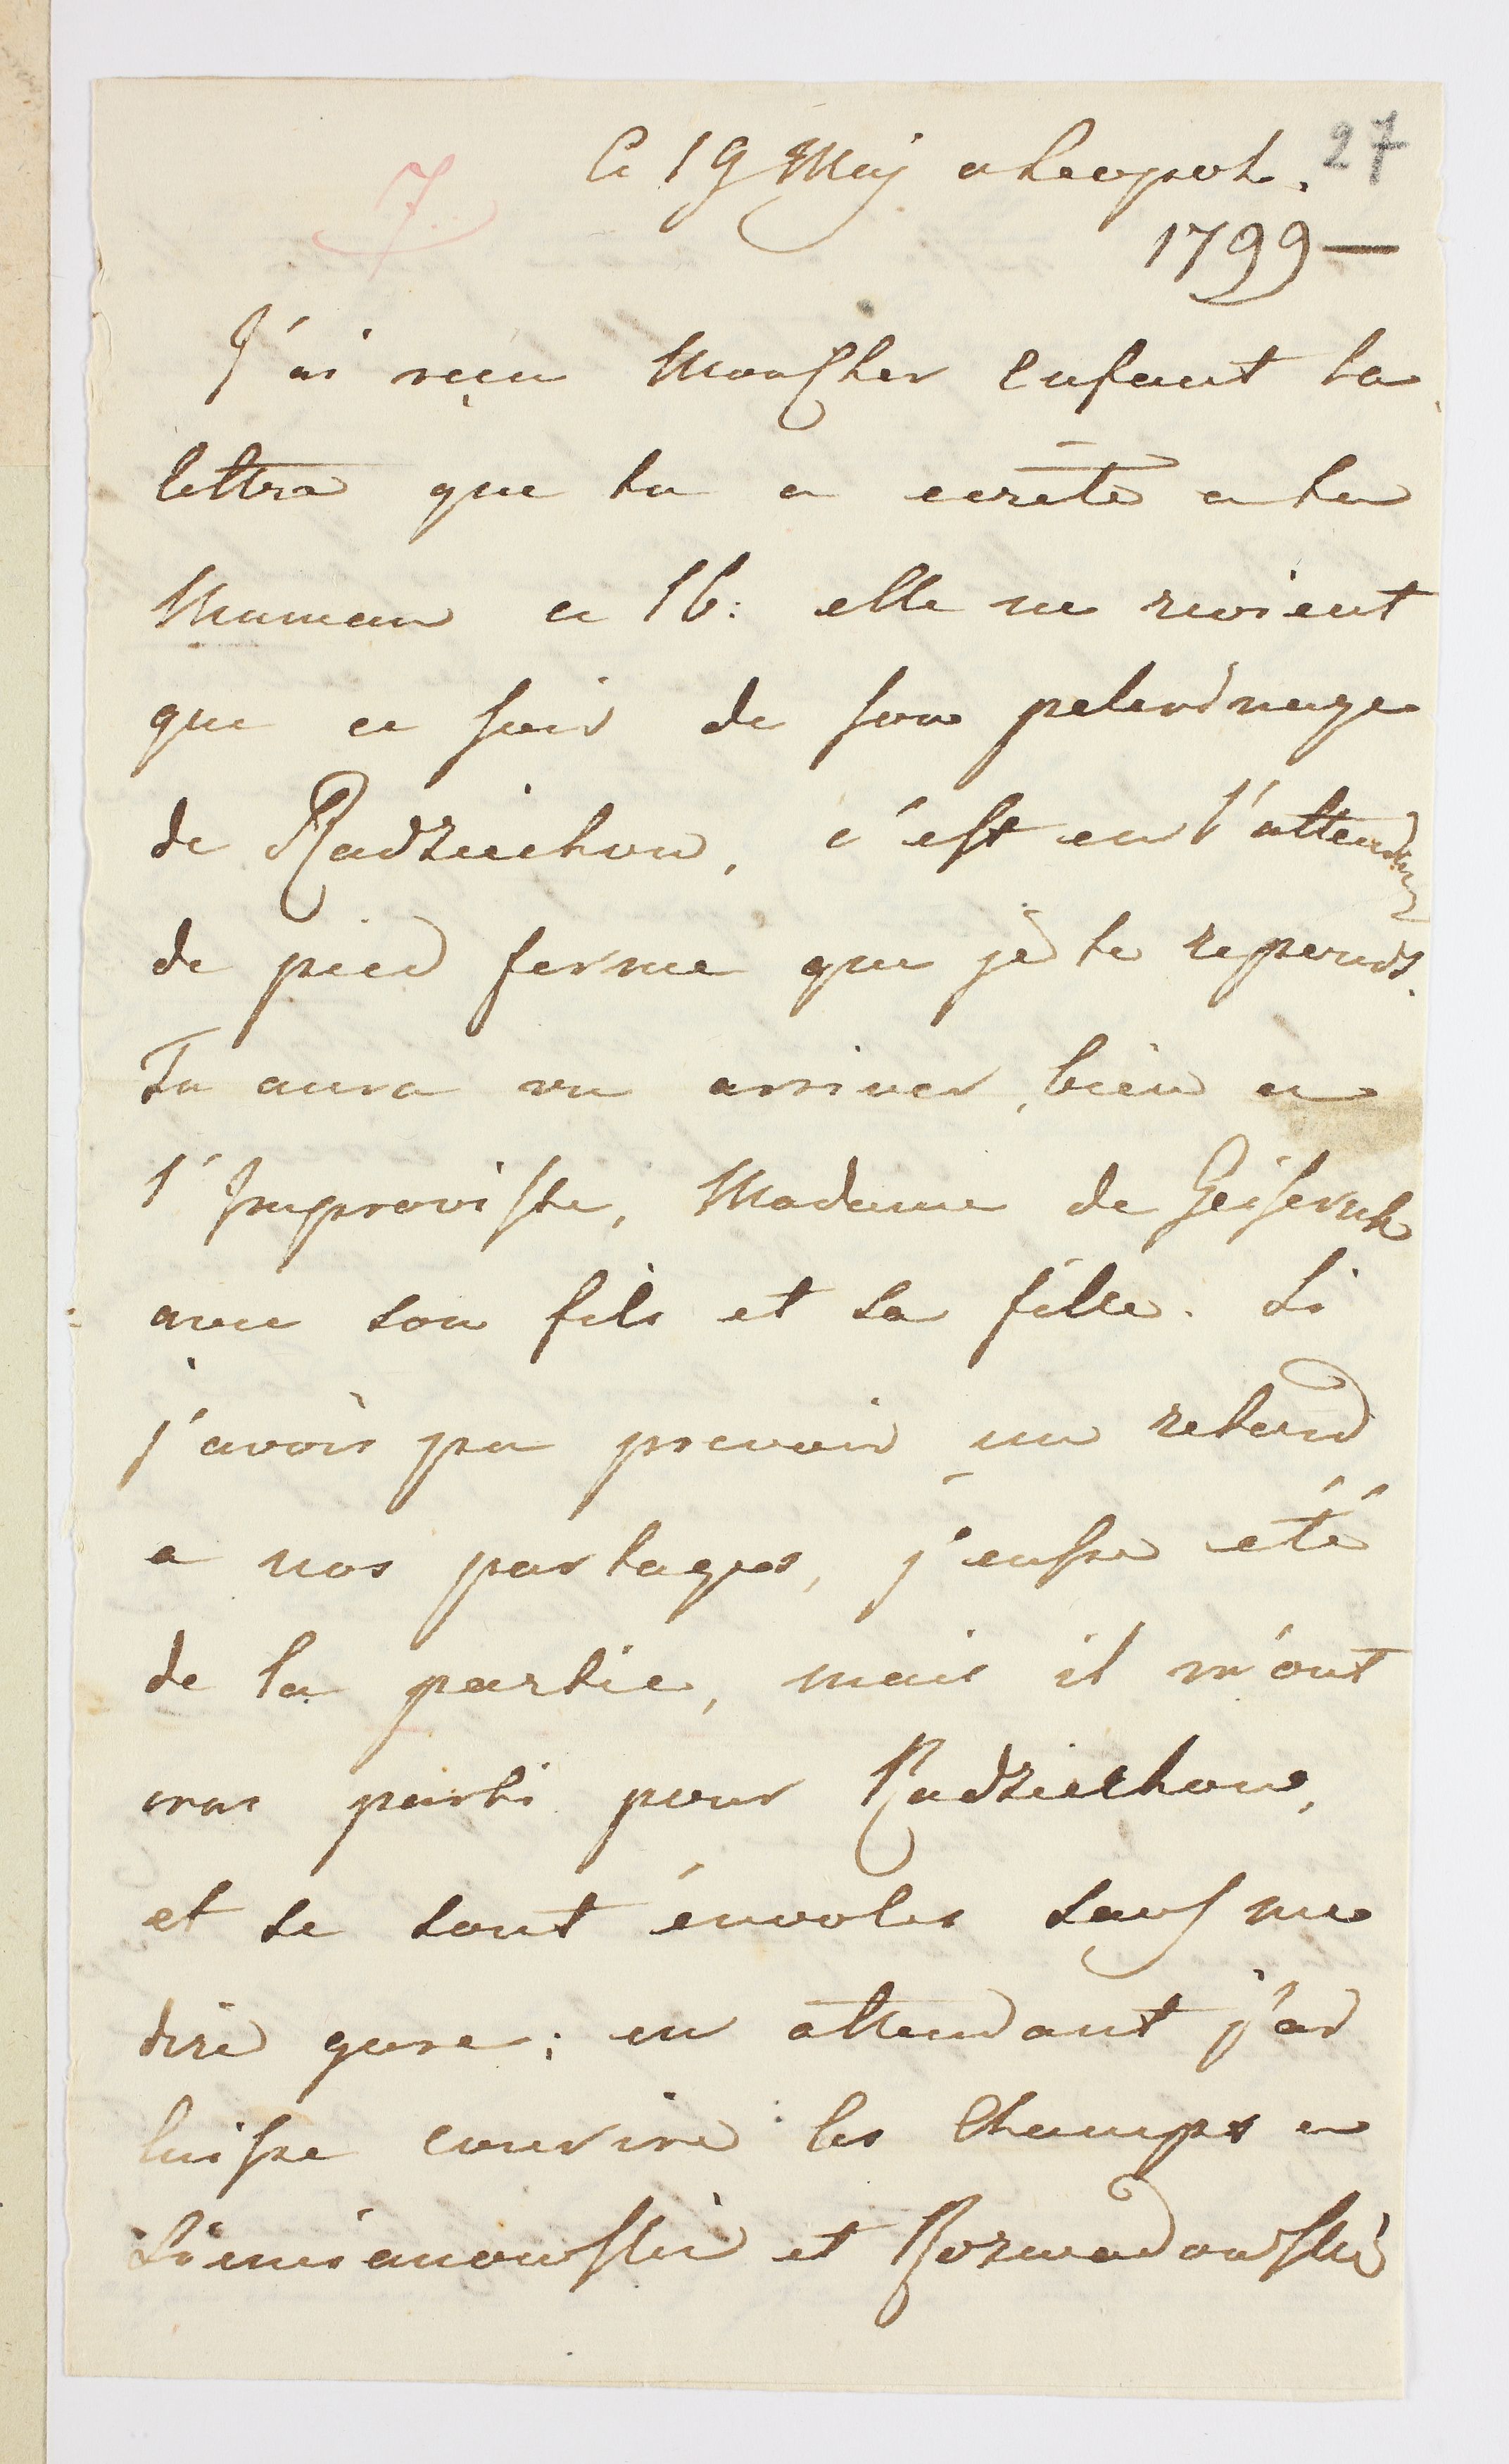 27
7.
Ce 19 Maj a Leopol.
1799 —
J'ai reçu Mon Cher Enfant la
lettre que tu a ecrite a ta
Maman ce 16: elle ne revient
que ce soir de son pelerinage
de Radziechow, c'est en l'attendant
de pied ferme que je te reponds.
Tu aura vu arriver, bien a
l'Improviste, Madame de Geisruck
avec son fils et sa fille. Si
j'avois pu prevoir un retard
a nos partages, j'eusse eté
de la partie, mais il m'ont
cru parti pour Radziechow,
et se sont énvolés sans me
dire gare; en attendant j'ai
laisse courire les Champs a
Siemianowski et Rozwadowski